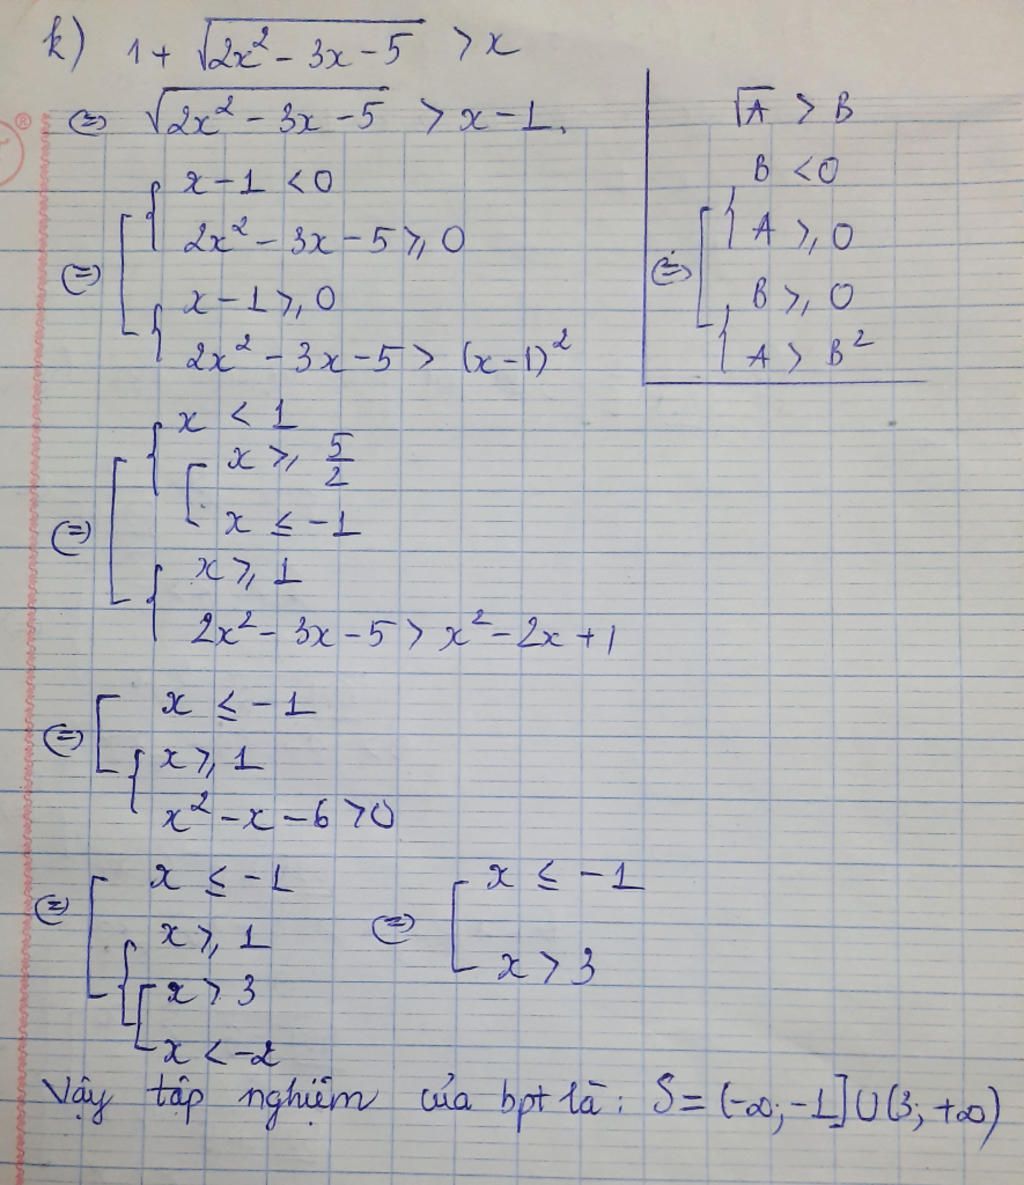 k) 1 + √(2x² - 3x - 5) > x
⇔ √(2x² - 3x - 5) > x - 1.
x - 1 < 0
2x² - 3x - 5 ≥ 0
⇔
x - 1 ≥ 0
2x² - 3x - 5 > (x-1)²
√A > B
B < 0
A ≥ 0
⇔
B ≥ 0
A > B²
x < 1
x ≥ 5/2
x ≤ -1
⇔
x ≥ 1
2x² - 3x - 5 > x² - 2x + 1
x ≤ -1
⇔
x ≥ 1
x² - x - 6 > 0
x ≤ -1
⇔
x ≥ 1
x > 3
x < -2
x ≤ -1
⇔
x > 3
Vậy tập nghiệm của bpt là: S = (-∞; -1] ∪ (3; +∞)